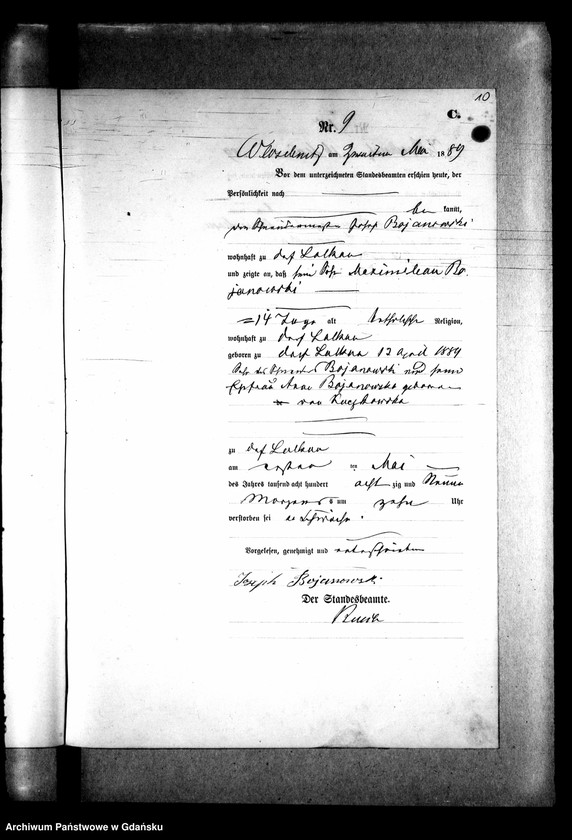 10
C.
Nr. 9
am zweiten Mai 1889
Vor dem unterzeichneten Standesbeamten erschien heute, der
Persönlichkeit nach
be kannt,
der Joseph Bojanowski
wohnhaft zu Dorf Lalkau
und zeigte an, daß sein Sohn Maximilian Bo-
janowski
14 Tage alt katholischer Religion,
wohnhaft zu Dorf Lalkau
geboren zu Dorf Lalkau 12 April 1889
Sohn des Bojanowski und seiner
Ehefrau Anna Bojanowska geborene
von
zu Dorf Lalkau
am ersten ten Mai
des Jahres tausend acht hundert acht zig und neun
Morgens um zehn Uhr
verstorben sei an Schwäche.
Vorgelesen, genehmigt und unterschrieben
Joseph Bojanowski
Der Standesbeamte.
Archiwum Państwowe w Gdańsku